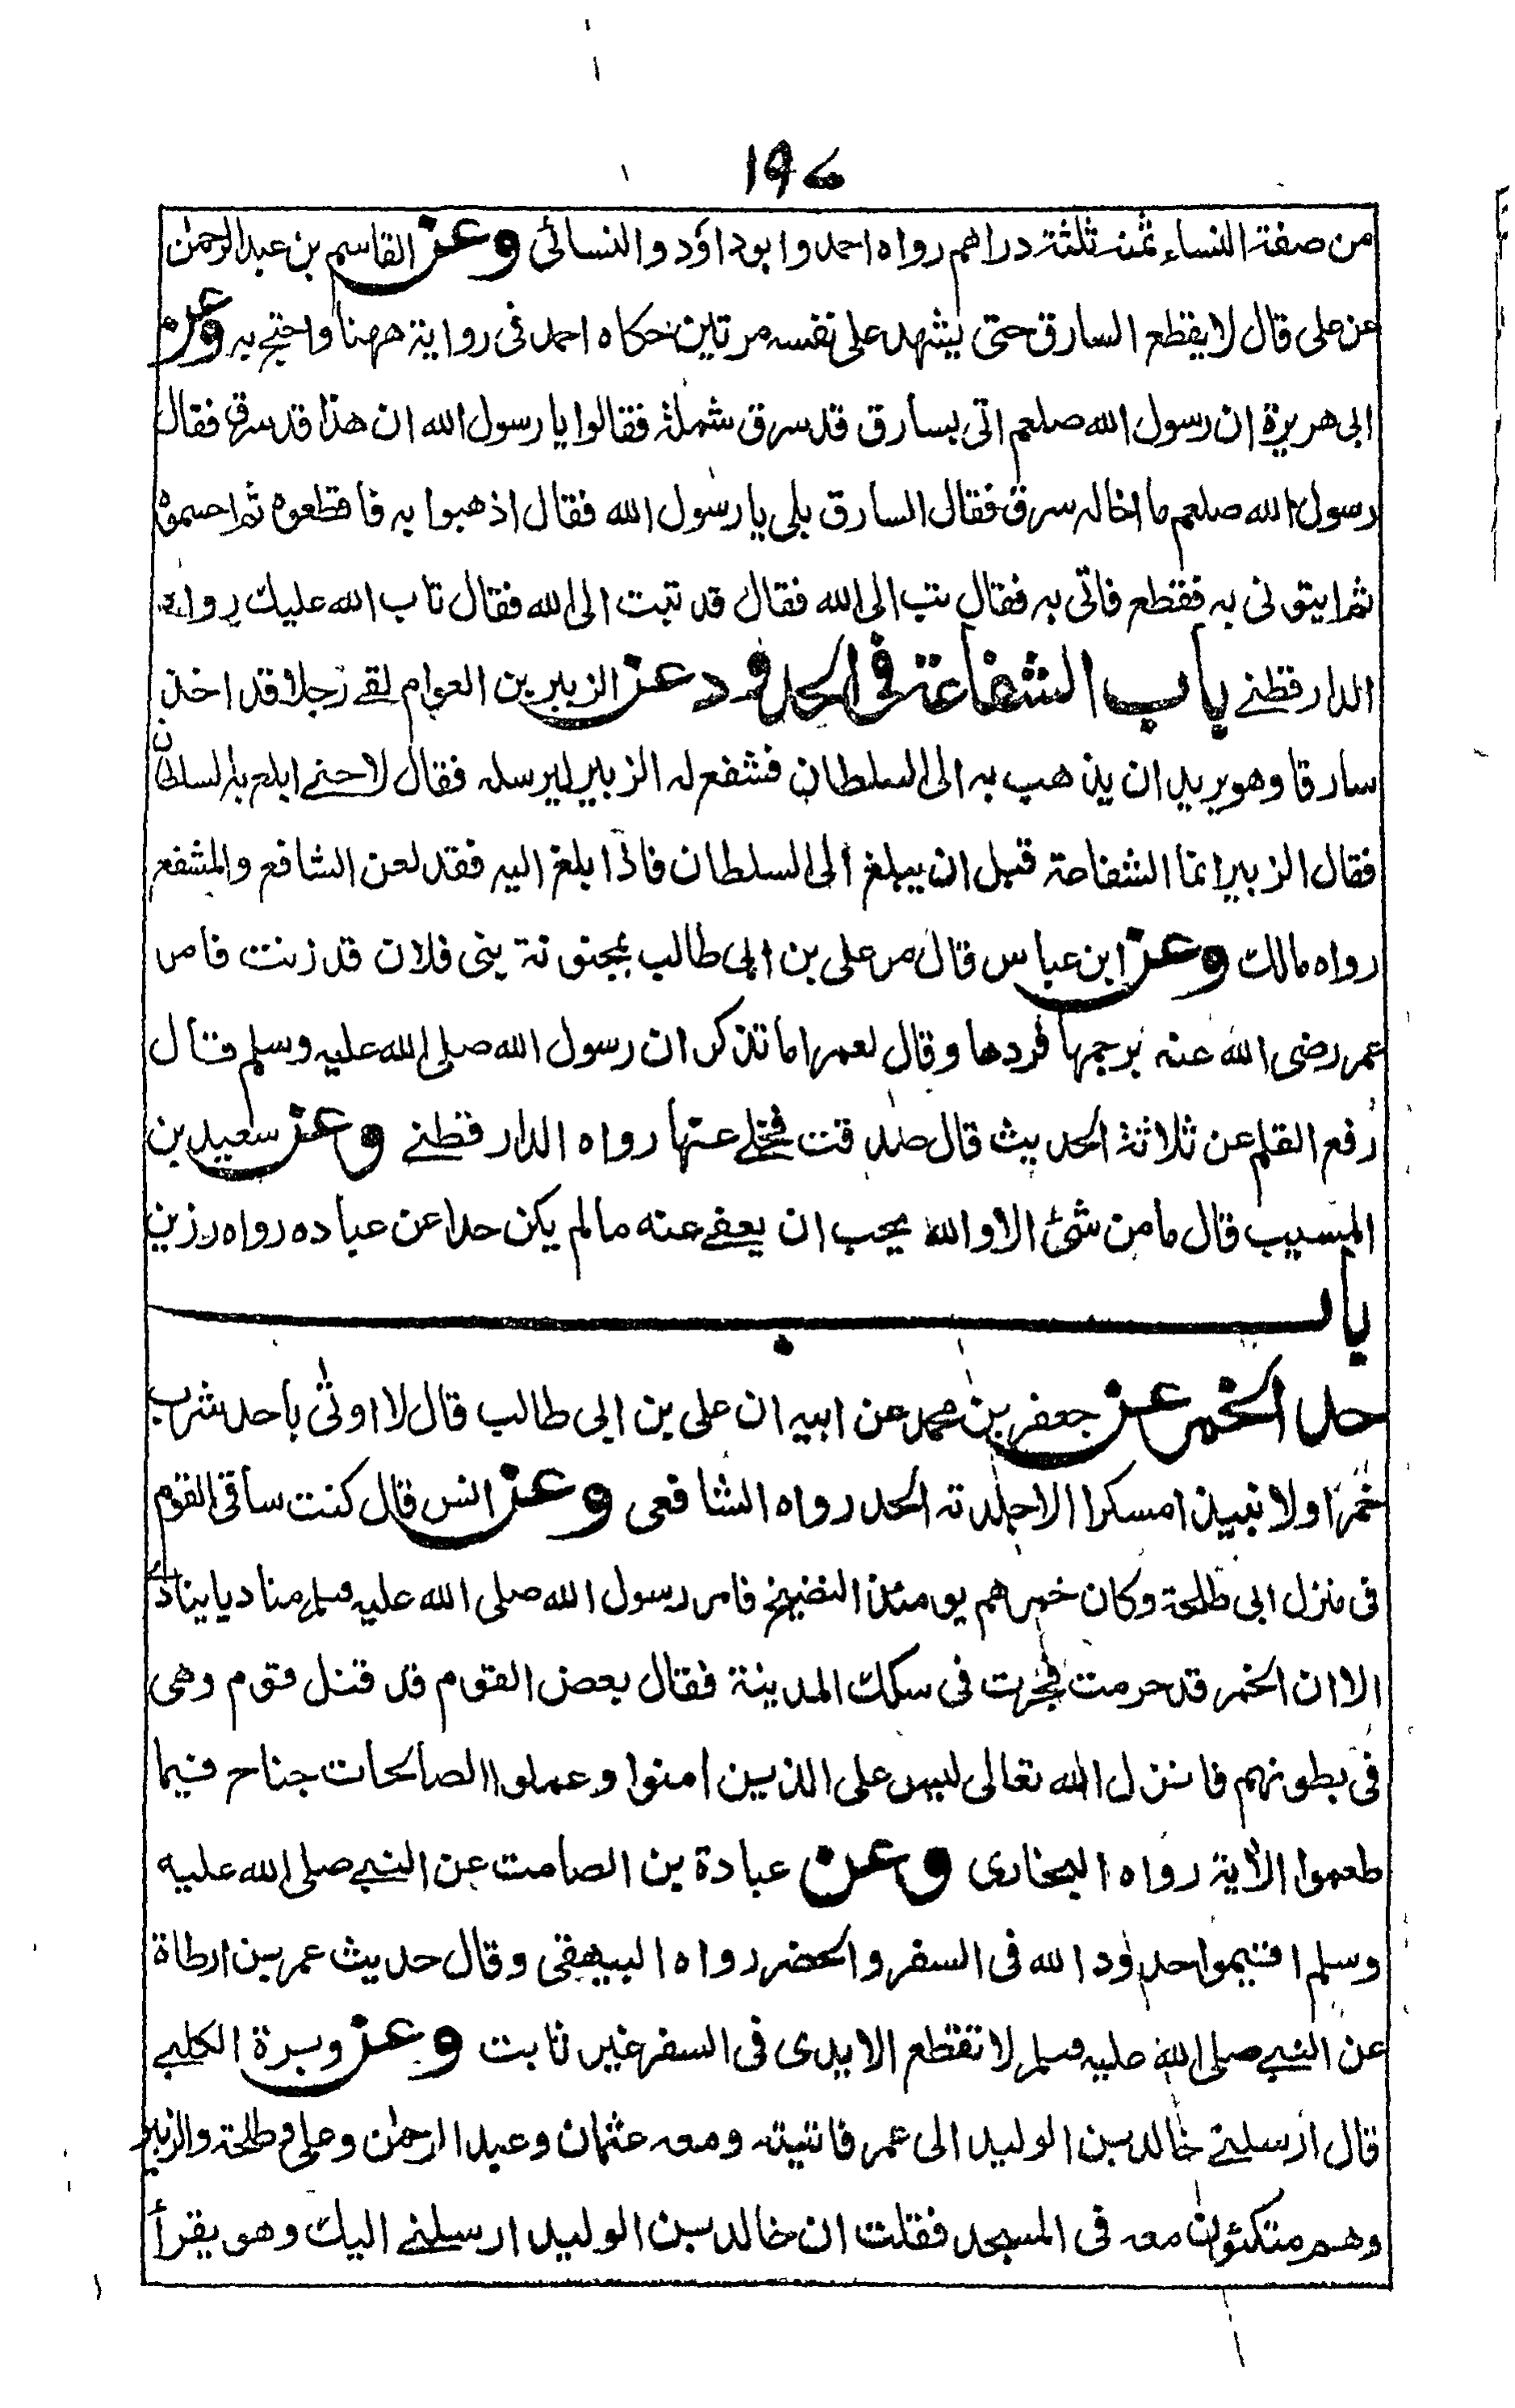 ۱۹۶
من صفة النساء ثمنه ثلثة دراهم رواه احمد وابوداؤد والنسائی وعن القاسم بن عبدالرحمٰن
عن علی قال لا یقطع السارق حتی یشهد علی نفسه مرتین حکاه احمد فی روایة مهنا واحتج به وعن
ابی هریرة ان رسول الله صلعم اتی بسارق قد سرق شملة فقالوا یا رسول الله ان هذا قد سرق فقال
رسول الله صلعم ما اخاله سرق فقال السارق بلی یا رسول الله فقال اذهبوا به فاقطعوه ثم احسموه
ثم ایتونی به فقطع فاتی به فقال تب الی الله فقال قد تبت الی الله فقال تاب الله علیک رواه
الدارقطنے باب الشفاعة فی الحدود عن الزبیر بن العوام لقے رجلا قد اخذ
سارقا وهو یرید ان یذهب به الی السلطان فشفع له الزبیر لیرسله فقال لا حتے ابلغ به السلطان
فقال الزبیر انما الشفاعة قبل ان یبلغ الی السلطان فاذا بلغ الیه فقد لعن الشافع والمشفع
رواه مالک وعن ابن عباس قال مر علی بن ابی طالب بمجنونة بنی فلان قد زنت فامر
عمر رضی الله عنه برجمها فردها وقال لعمر اما تذکر ان رسول الله صلی الله علیه وسلم قال
رفع القلم عن ثلاثة الحدیث قال صدقت فخلے عنها رواه الدارقطنے وعن سعید بن
المسیب قال ما من شئ الا والله یحب ان یعفے عنه مالم یکن حدا عن عباده رواه رزین
باب
حد الخمر عن جعفر بن محمد عن ابیه ان علی بن ابی طالب قال لا اوتٰی باحد شرب
خمرا ولا نبیذا مسکرا الا جلدته الحد رواه الشافعی وعن انس قال کنت ساقی القوم
فی منزل ابی طلحة وکان خمرهم یومئذ الفضیخ فامر رسول الله صلی الله علیه وسلم منادیا ینادی
الا ان الخمر قد حرمت فجرت فی سکک المدینة فقال بعض القوم قد قتل قوم وهی
فی بطونهم فانزل الله تعالی لیس علی الذین امنوا وعملوا الصالحات جناح فیما
طعموا الأیة رواه البخاری وعن عبادة بن الصامت عن النبے صلی الله علیه
وسلم اقیموا حدود الله فی السفر والحضر رواه البیهقی وقال حدیث عمر بن ارطاة
عن النبے صلی الله علیه وسلم لا تقطع الایدی فی السفر غیر ثابت وعن وبرة الکلبے
قال ارسلنے خالد بن الولید الی عمر فاتیته ومعه عثمان وعبد الرحمٰن وعلی وطلحة والزبیر
وهم متکئون معه فی المسجد فقلت ان خالد بن الولید ارسلنے الیک وهو یقرأ